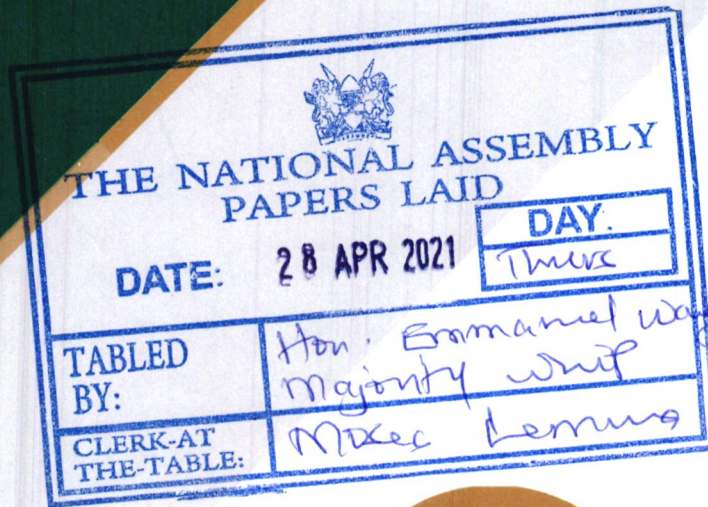 THE NATIONAL ASSEMBLY
PAPERS LAID
DATE: 28 APR 2021
DAY.
TABLED BY:
Hon. Emmanuel
Majority Whip
CLERK-AT
THE-TABLE: